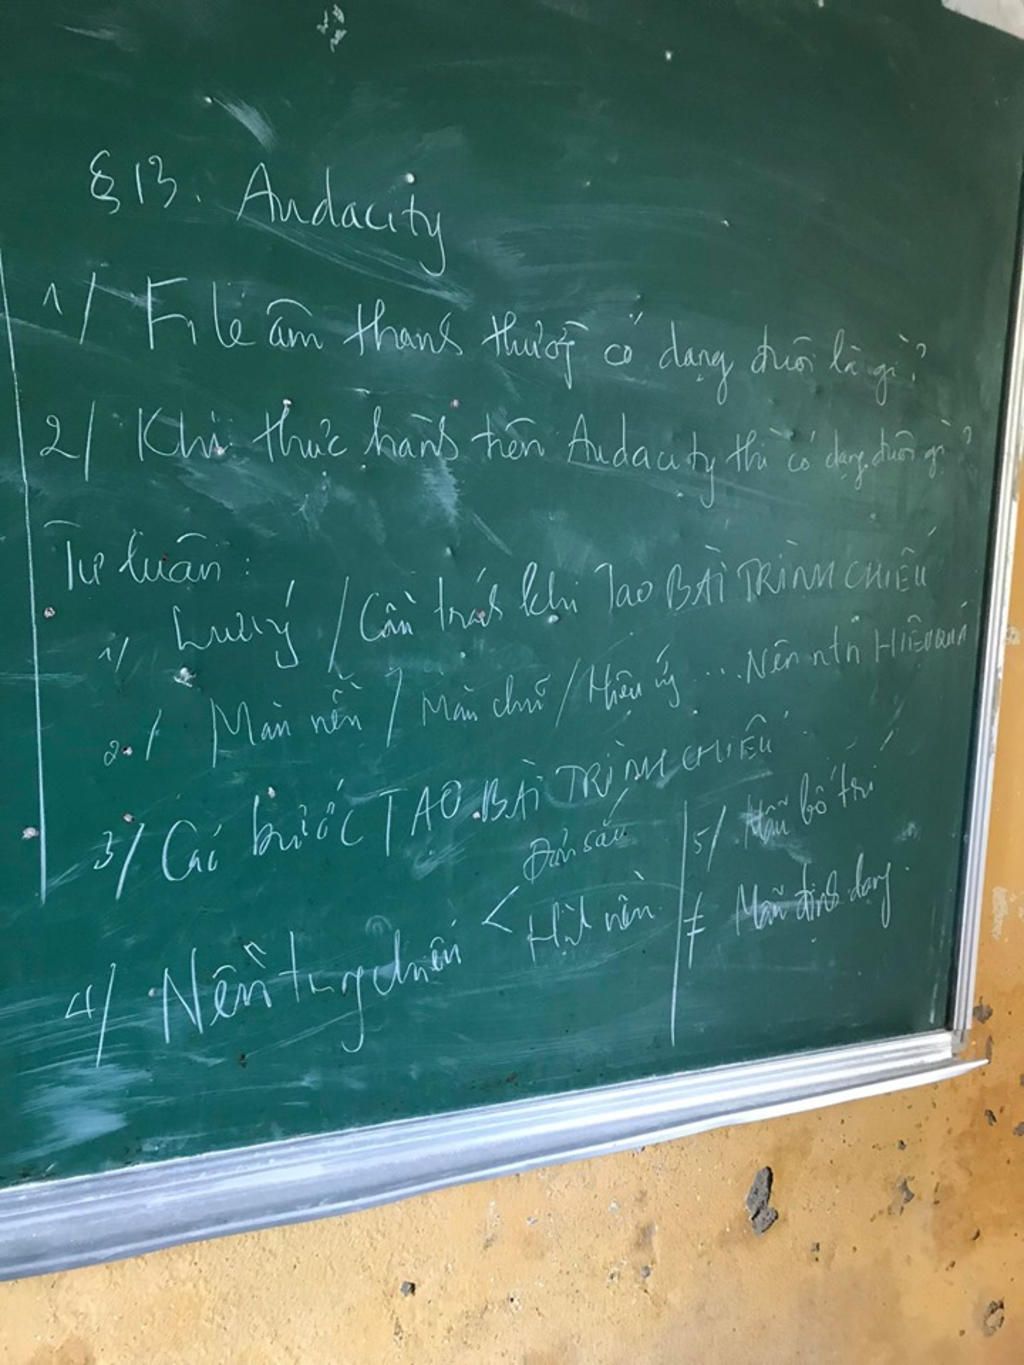 § 13. Audacity
1/ File âm thanh thường có dạng đuôi là gì?
2/ Khi thực hành trên Audacity thì có dạng đuôi gì?
Tự luận:
1/ Lưu ý / Cần tránh khi TẠO BÀI TRÌNH CHIẾU
2/ Màu nền / Màu chữ / Hiệu ứ ... Nên ntn HIỆU QUẢ
3/ Các bước TẠO BÀI TRÌNH CHIẾU
4/ Nền trang chiếu < Đơn sắc
Hình nền
5/ Mẫu bố trí
≠ Mẫu định dạng.